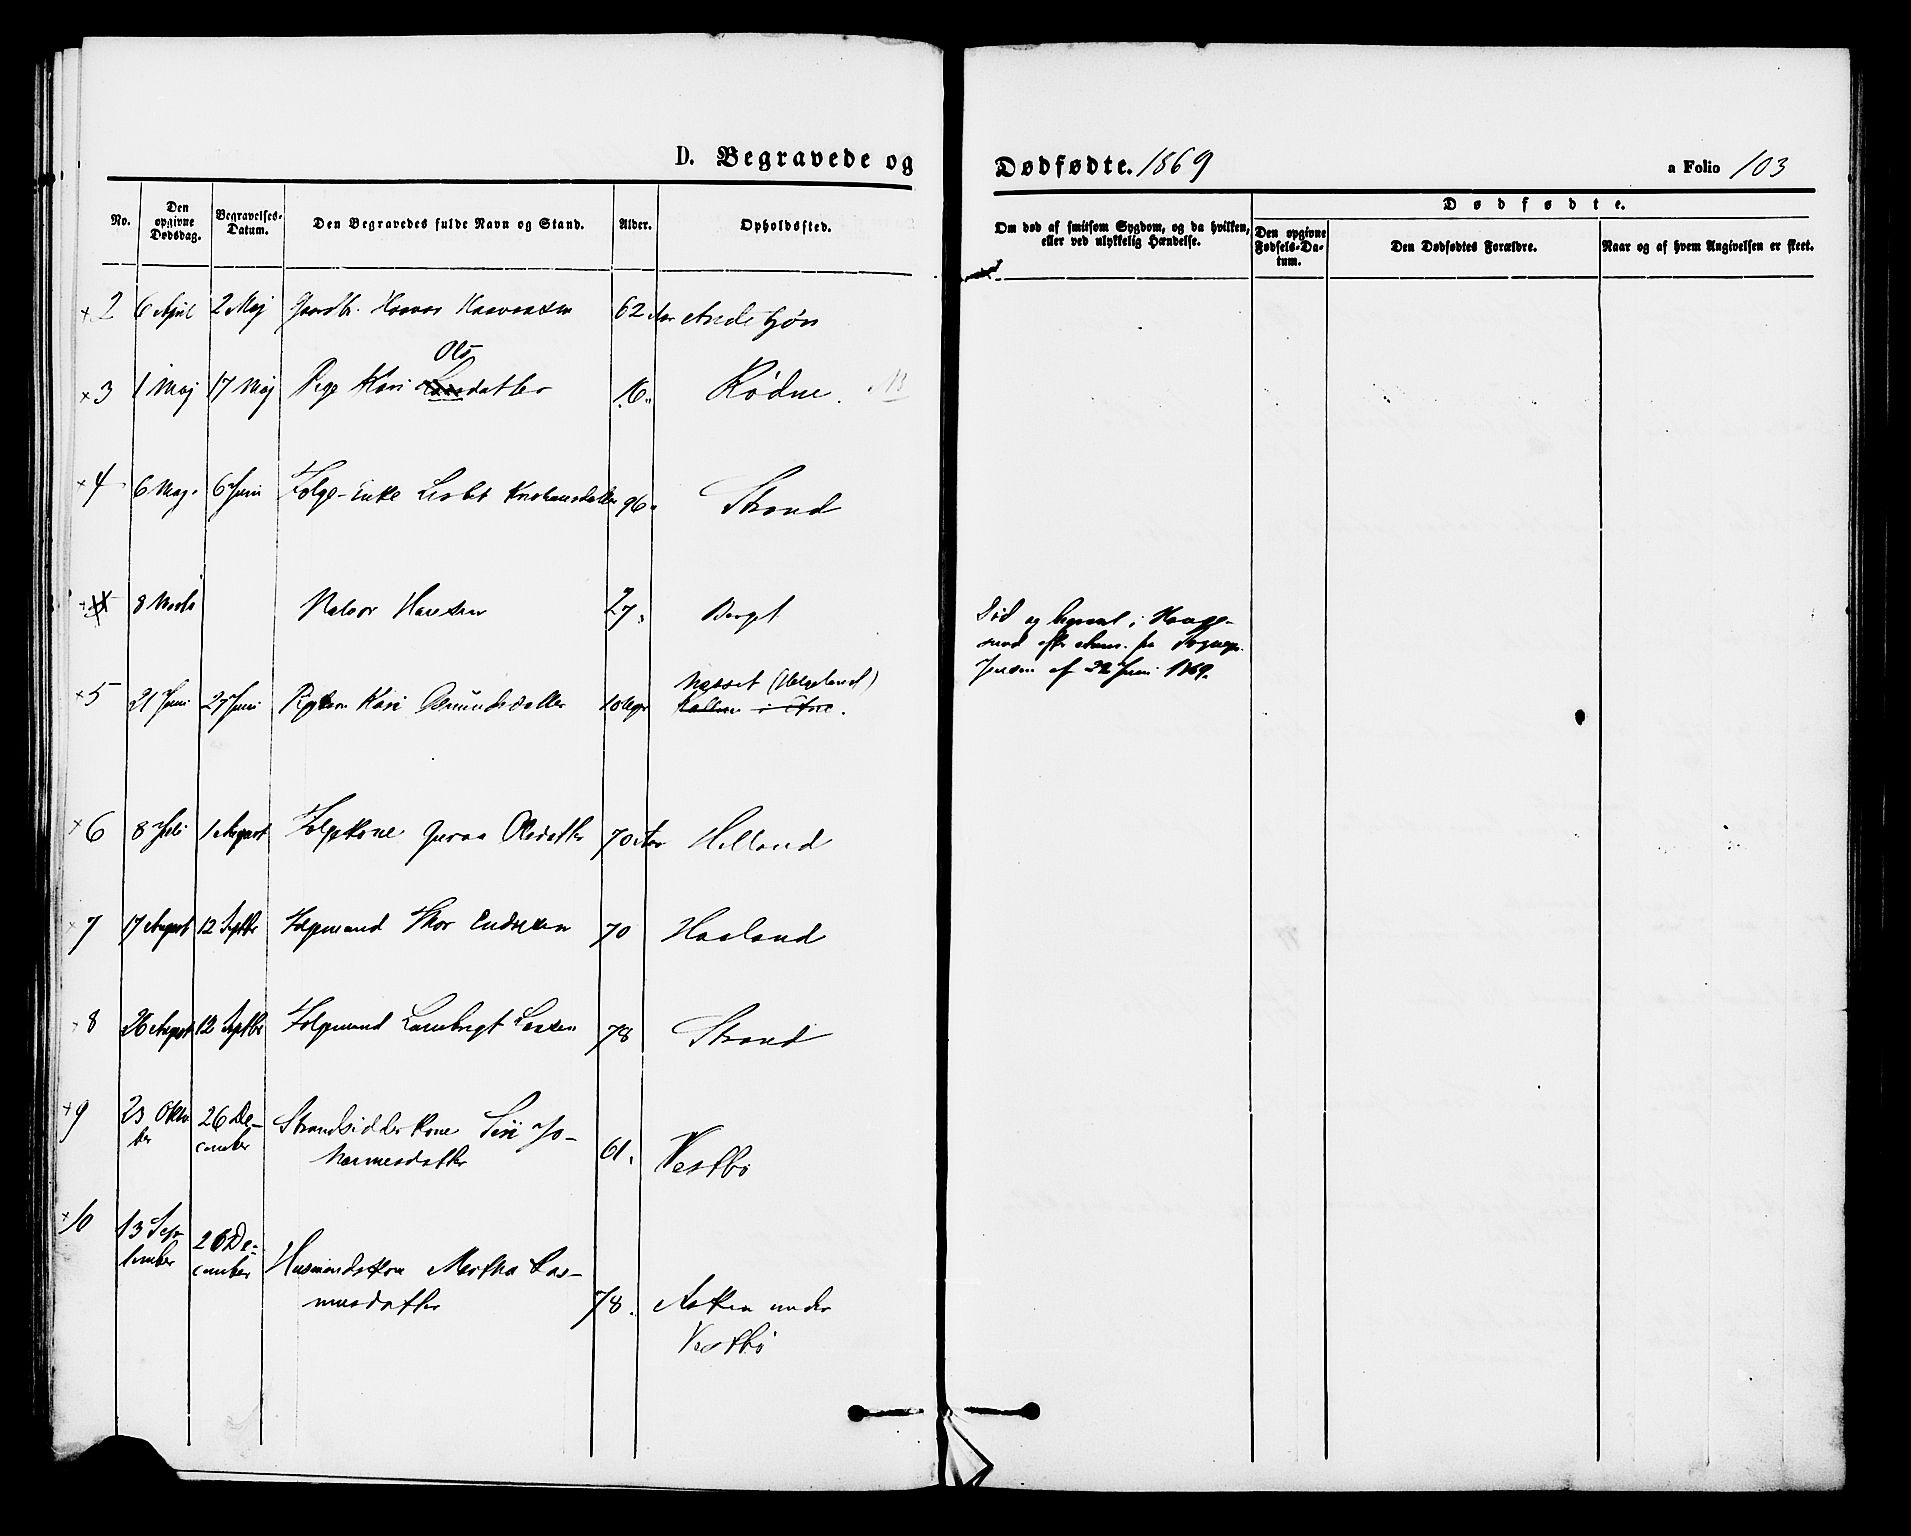 D. Begravede og Dødfødte. 1869
a Folio 103
No. Den opgivne Dødsdag. Begravelses-Datum. Den Begravedes fulde Navn og Stand. Alder. Opholdssted. Om død af smitsom Sygdom, og da hvilken, eller ved ulykkelig Hændelse.
Dødfødte.
Den opgivne Fødsels-Datum. Den Dødfødtes Forældre. Naar og af hvem Angivelsen er skeet.
2 6 April 2 Maj Gaardbr. 62 Aar
Ols
3 1 Maj 17 Maj Pige Kari datter 16 " Rødne.
4 6 Maj. 6 Juni Folge-Enke Lisbet 96 " Strand
8 Halvor Hansen 27 " Død og i Houge-
sund efter fra Sognepr.
af 22 Juni 1869.
Nesset (Helgeland)
5 21 Juni 27 Juni Kari 10 Uger i Etne.
6 8 Juli 1 August Folgekone Olsdatter 70 Aar Helland
7 17 August 12 Septbr Folgemand Thor Endresen 70 Haaland
8 26 August 12 Septbr Folgemand Lambregt 78 Strand
9 23 Okto- 26 De- Strandsidderkone Siri Jo-
ber cember hannesdatter 61 " Vestbø
10 13 Sep- 26 De-
tember cember Husmandskone Martha Ras-
musdatter 78 " Asken under
Vestbø